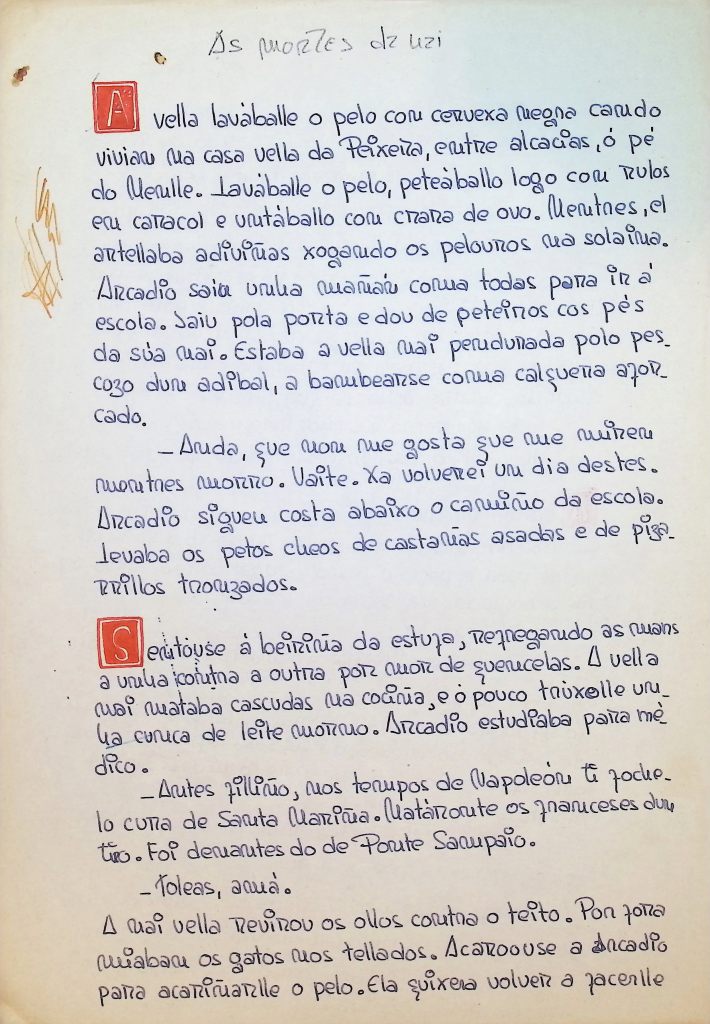 As mortes de uzi
A vella laváballe o pelo con cervexa negra cando
vivian na casa vella da Peixeira, entre alcacias, ó pé
do Merille. Laváballe o pelo, peteáballo logo con rulos
en caracol e untáballo con crara de ovo. Mentres, el
artellaba adiviñas xogando os pelouros na solaina.
Arcadio saiu unha mañán coma todas para ir á
escola. Saiu pola porta e dou de peteiros cos pés
da súa nai. Estaba a vella nai pendurada polo pes-
cozo dun adibal, a bambearse coma calquera afor-
cado.
—Anda, que non me gosta que me miren
mentres morro. Vaite. Xa volverei un dia destes.
Arcadio sigueu costa abaixo o camiño da escola.
Levaba os petos cheos de castañas asadas e de piza-
rrillos tronzados.
Sentouse á beiriña da estufa, refregando as mans
a unha contra a outra por mor de quencelas. A vella
nai mataba cascudas na cociña, e ó pouco trúxolle un-
ha cunca de leite morno. Arcadio estudiaba para mé-
dico.
—Antes filliño, nos tempos de Napoleón ti foche-
lo cura de Santa Mariña. Matáronte os franceses dun
tiro. Foi denantes do de Ponte Sampaio.
—Toleas, amá.
A nai vella revirou os ollos contra o teito. Por fora
miaban os gatos nos tellados. Acaroouse a Arcadio
para acariñarlle o pelo. Ela quixera volver a facerlle